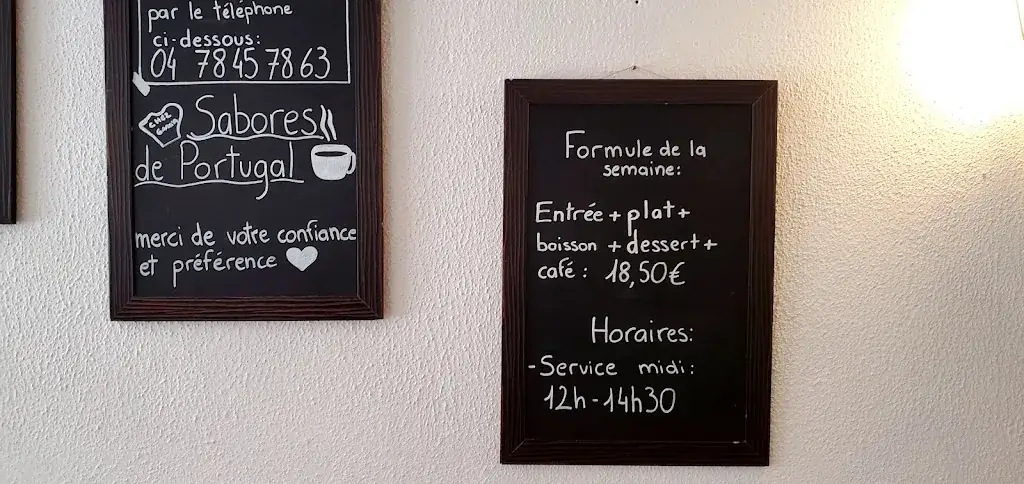 par le téléphone
ci-dessous:
04 78 45 78 63
CHEZ
Sabores
de Portugal
merci de votre confiance
et préférence
Formule de la
semaine:
Entrée + plat +
boisson + dessert +
café : 18,50€
Horaires:
- Service midi :
12h - 14h30